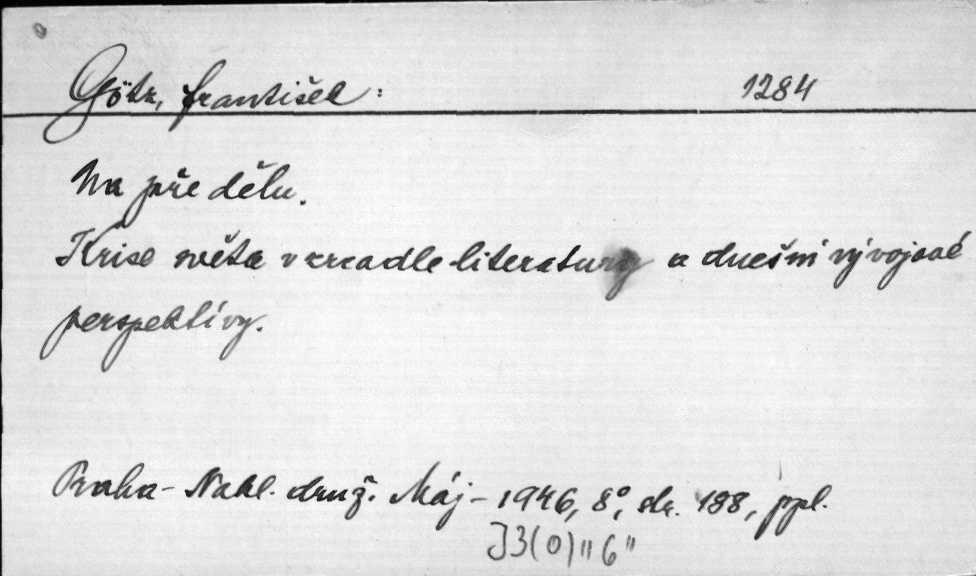 Götz, František: 1284
Na předělu.
Krise světa v zrcadle literatury a dnešní vývojové
perspektívy.
Praha - Nakl. druž. Máj - 1946, 8°, str. 188, ppl.
J3(0)"6"